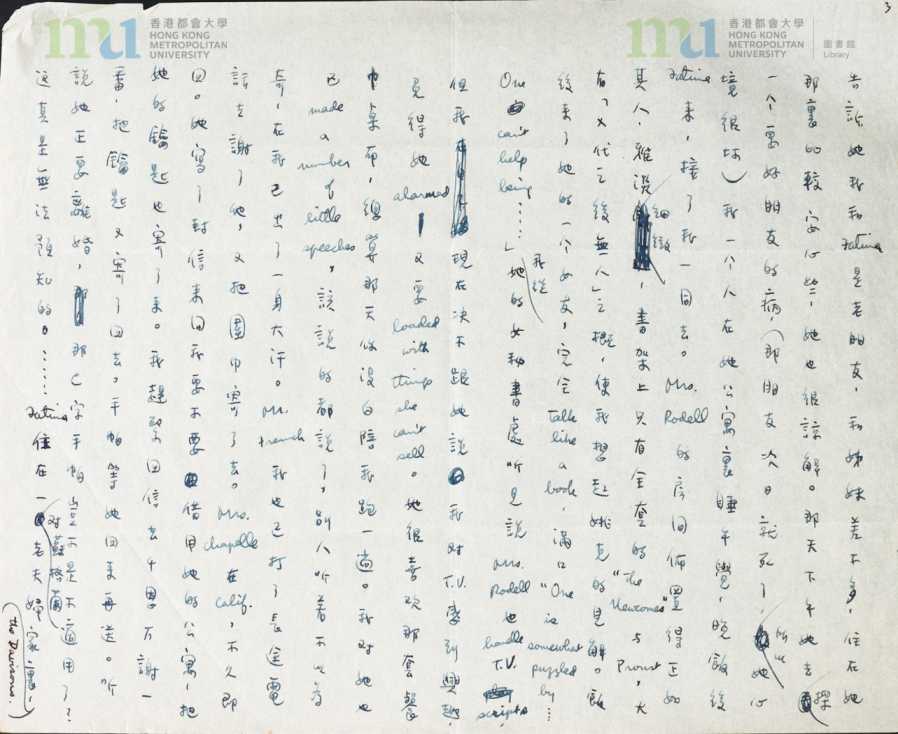 3
香港都會大學
HONG KONG
METROPOLITAN
UNIVERSITY
香港都會大學
HONG KONG
METROPOLITAN
UNIVERSITY
圖書館
Library
告訴她我和Fatima是老朋友，和姊妹差不多，住在她
那裏比較安心些，她也很諒解。那天下午她去探
一個要好朋友的病，（那朋友次日就死了，所以她心
境很坏）我一個人在她公寓裏睡午覺，晚飯後
Fatima來，接了我一同去。Mrs. Rodell的房间佈置得正如
其人，雅淡細緻，書架上只有全套的"The Newcomes"与Proust，大
有「×代之後無一人」之概，使我想起姚克的見解。飯
後來了她的一个女友，完全talk like a book，滿口"One is somewhat puzzled by…
One can't help being……」我從她的女秘書處听見説Mrs. Rodell也handle T.V. scripts，
但我現在決不跟她説我对T.V.感到興趣，
免得她alarmed，又要loaded with things she can't sell。她很喜欢那套餐
巾桌布，總算那天你沒白陪我跑一趟。我对她也
已made a number of little speeches，該説的都説了，別人听着不以為
奇，在我已出了一身大汗。Mr. French我也已打了長途電
話去謝了他，又把圍巾寄了去。Mrs. Chapelle在Calif.，不久即
回。她寫了封信來问我要不要借用她的公寓，把
她的鑰匙也寄了來。我趕緊回信去千恩万謝一
番，把鑰匙又寄了回去。手帕等她回來再送。听
説她正要離婚，那C字手帕豈不是不適用了？
这真是無法預知的。……Fatima住在一对蘇格蘭老夫婦家裏，
(the Davisons)